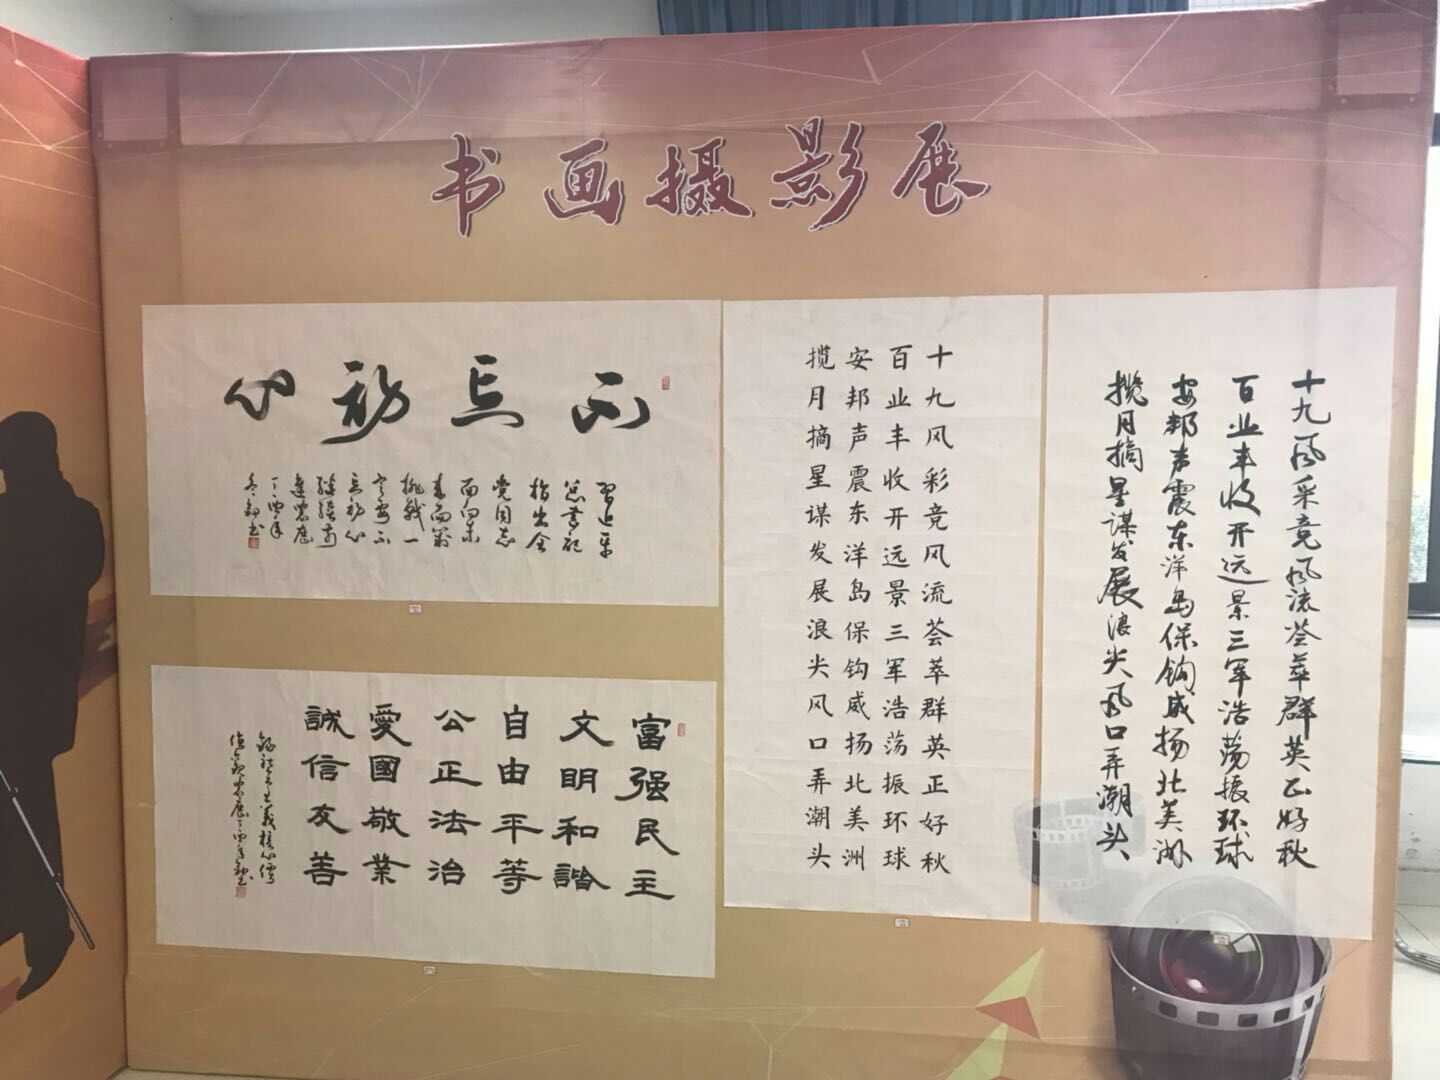 书画摄影展
不忘初心
习近平
总书记
指出全
党同志
面向未
来面对
挑战一
定要不
忘初心
继续前
进
丁酉年
富强民主
文明和諧
自由平等
公正法治
愛國敬業
誠信友善
十九风彩竞风流荟萃群英正好秋
百业丰收开远景三军浩荡振环球
安邦声震东洋岛保钩威扬北美洲
揽月摘星谋发展浪尖风口弄潮头
十九风采竞风流荟萃群英正好秋
百业丰收开远景三军浩荡振环球
安邦声震东洋岛保钩威扬北美洲
揽月摘星谋发展浪尖风口弄潮头